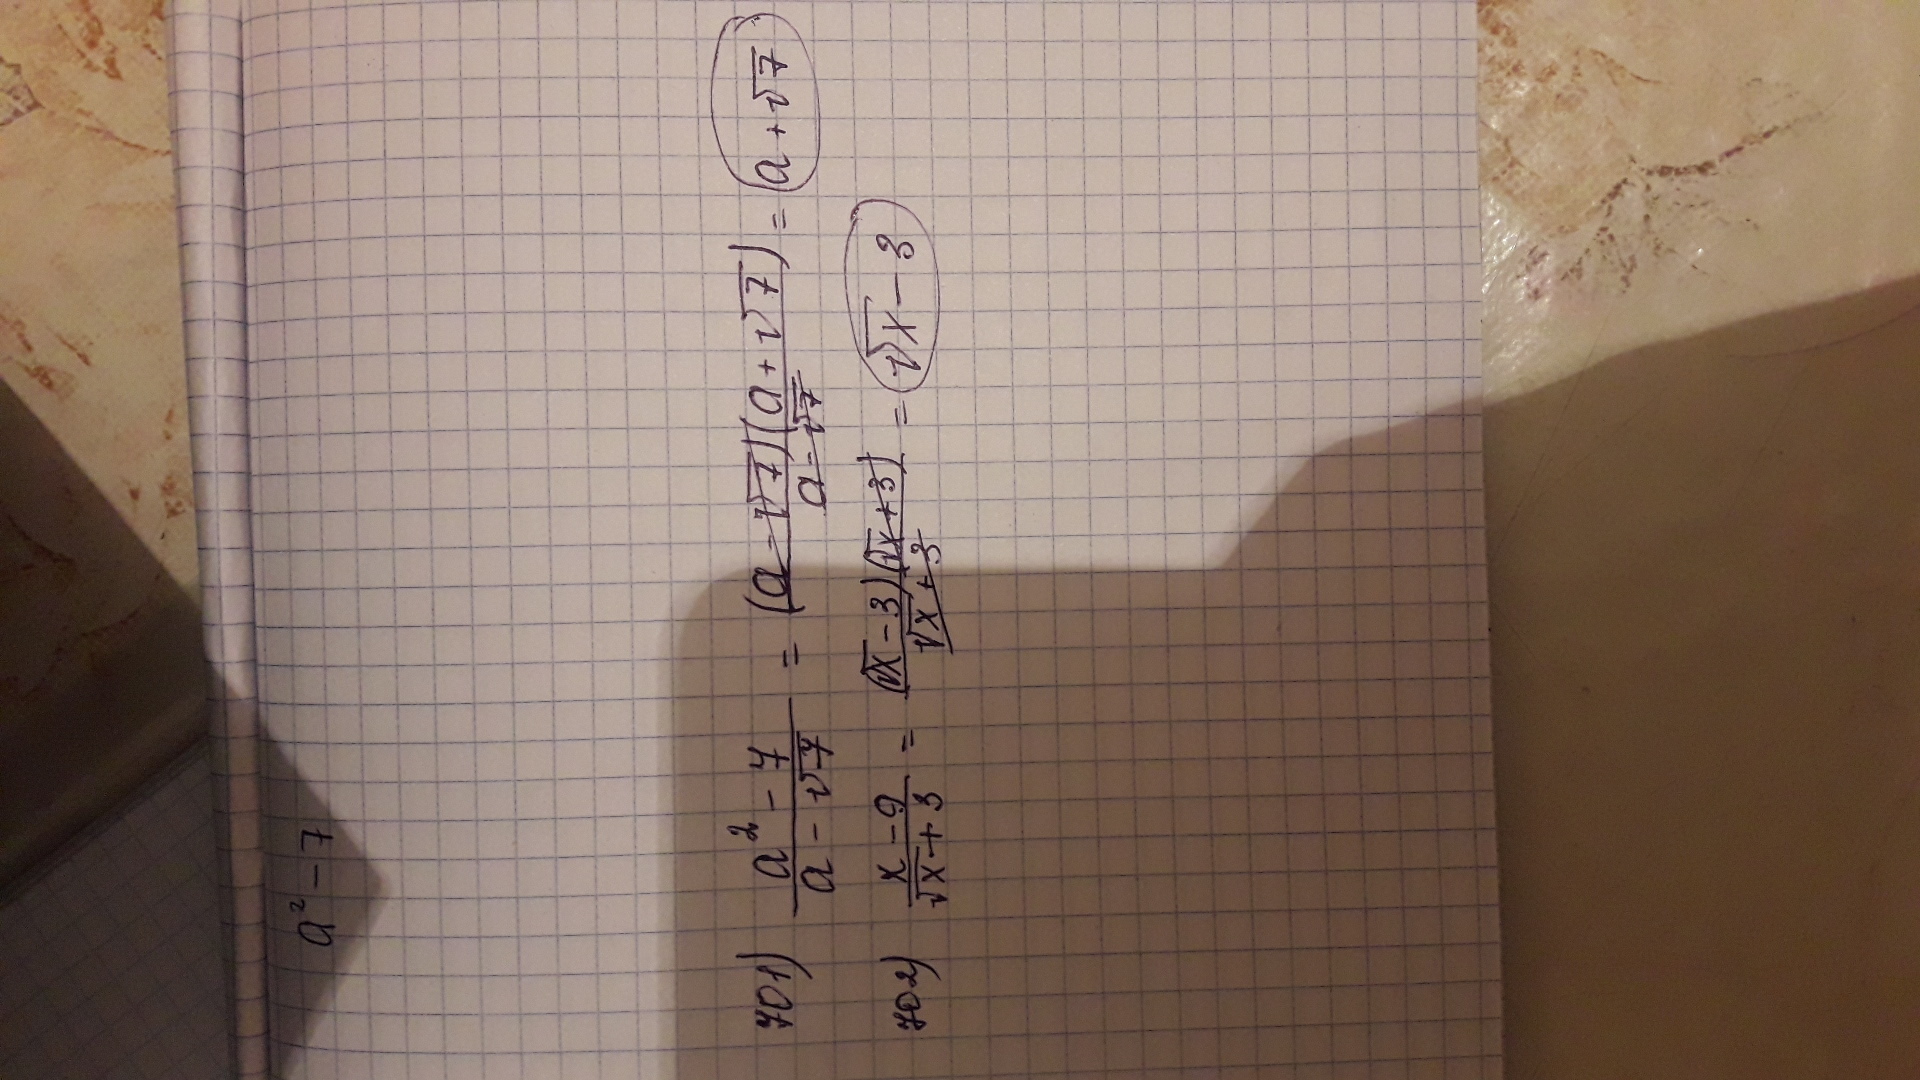 a² - 7
701) (a² - 7)/(a - √7) = ((a - √7)(a + √7))/(a - √7) = a + √7
702) (x - 9)/(√x + 3) = ((√x - 3)(√x + 3))/(√x + 3) = √x - 3